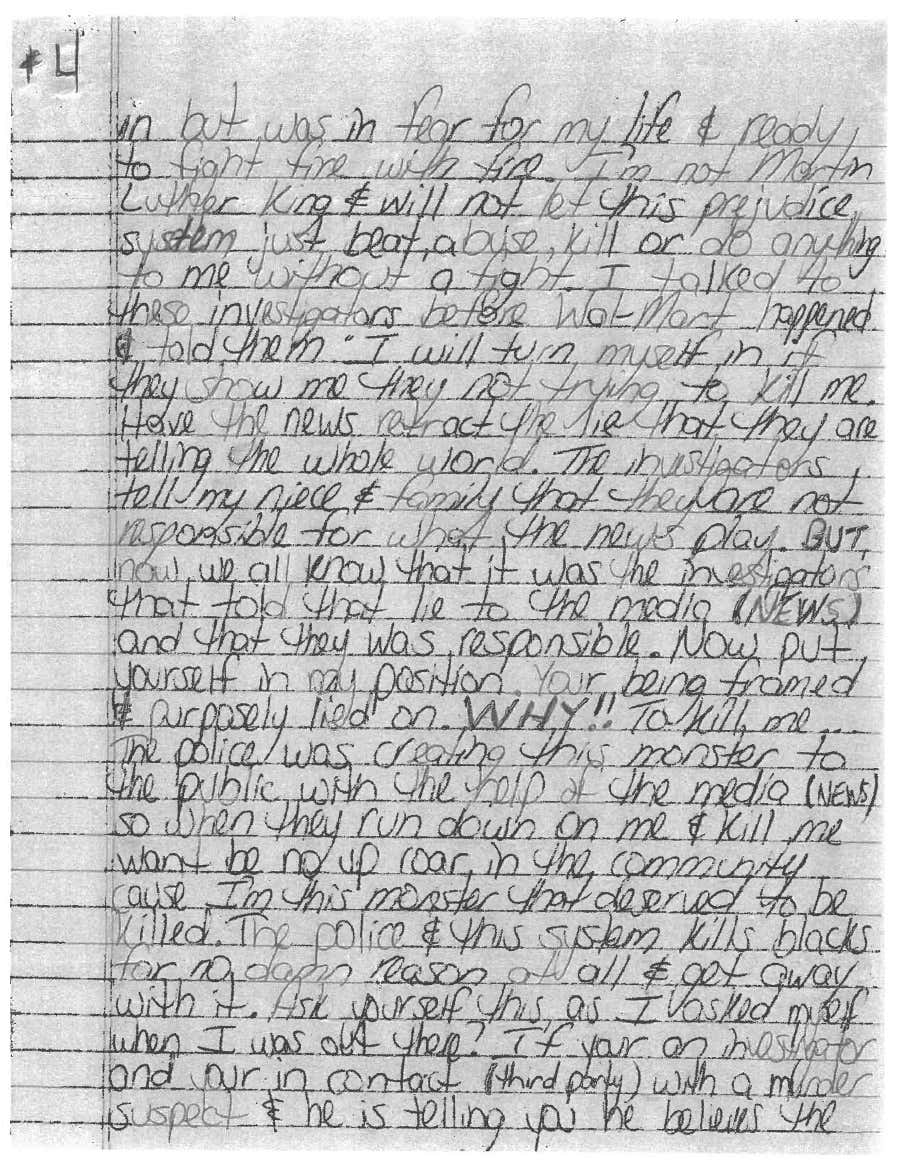 #4
in but was in fear for my life & ready,
to fight fire with fire. I'm not Martin
Luther King & will not let this prejudice,
system just beat, abuse, kill or do anything
to me without a fight. I talked to
these investigators before Wal-Mart happened
& told them "I will turn myself in if
they show me they not trying to kill me.
Have the news retract the lie that they are
telling the whole world. The investigators,
tell my niece & family that they are not
responsible for what the news play. BUT,
now, we all know that it was the investigators
that told that lie to the media (NEWS)
and that they was responsible. Now put,
yourself in my position. Your being framed
& purposely lied on. WHY!! To kill me...
The police was creating this monster to
the public with the help of the media (NEWS)
so when they run down on me & kill me
want be no up roar, in the community
cause I'm this monster that deserved to be
killed. The police & this system kills blacks
for no damn reason at all & get away
with it. Ask yourself this, as I asked myself
when I was out there? If your an investigator
and your in contact (third party) with a murder
suspect & he is telling you he believes the